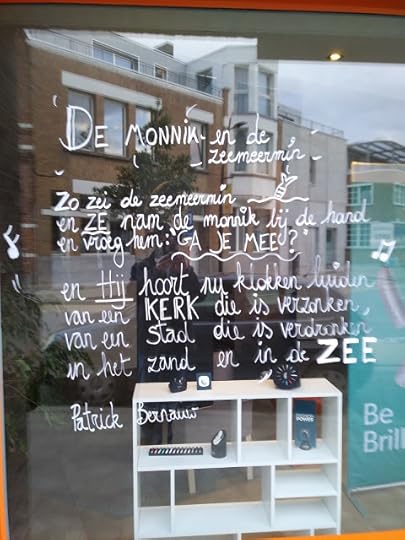 DE MONNIK en de
zeemeermin
Zo zei de zeemeermin
en ZE nam de monnik bij de hand
en vroeg hem: "GA JE MEE?"
en Hij hoort nu klokken luiden
van een KERK die is verzonken,
van een stad die is verdronken
in het zand en in de ZEE
Patrick Bernauw
Be
Brill